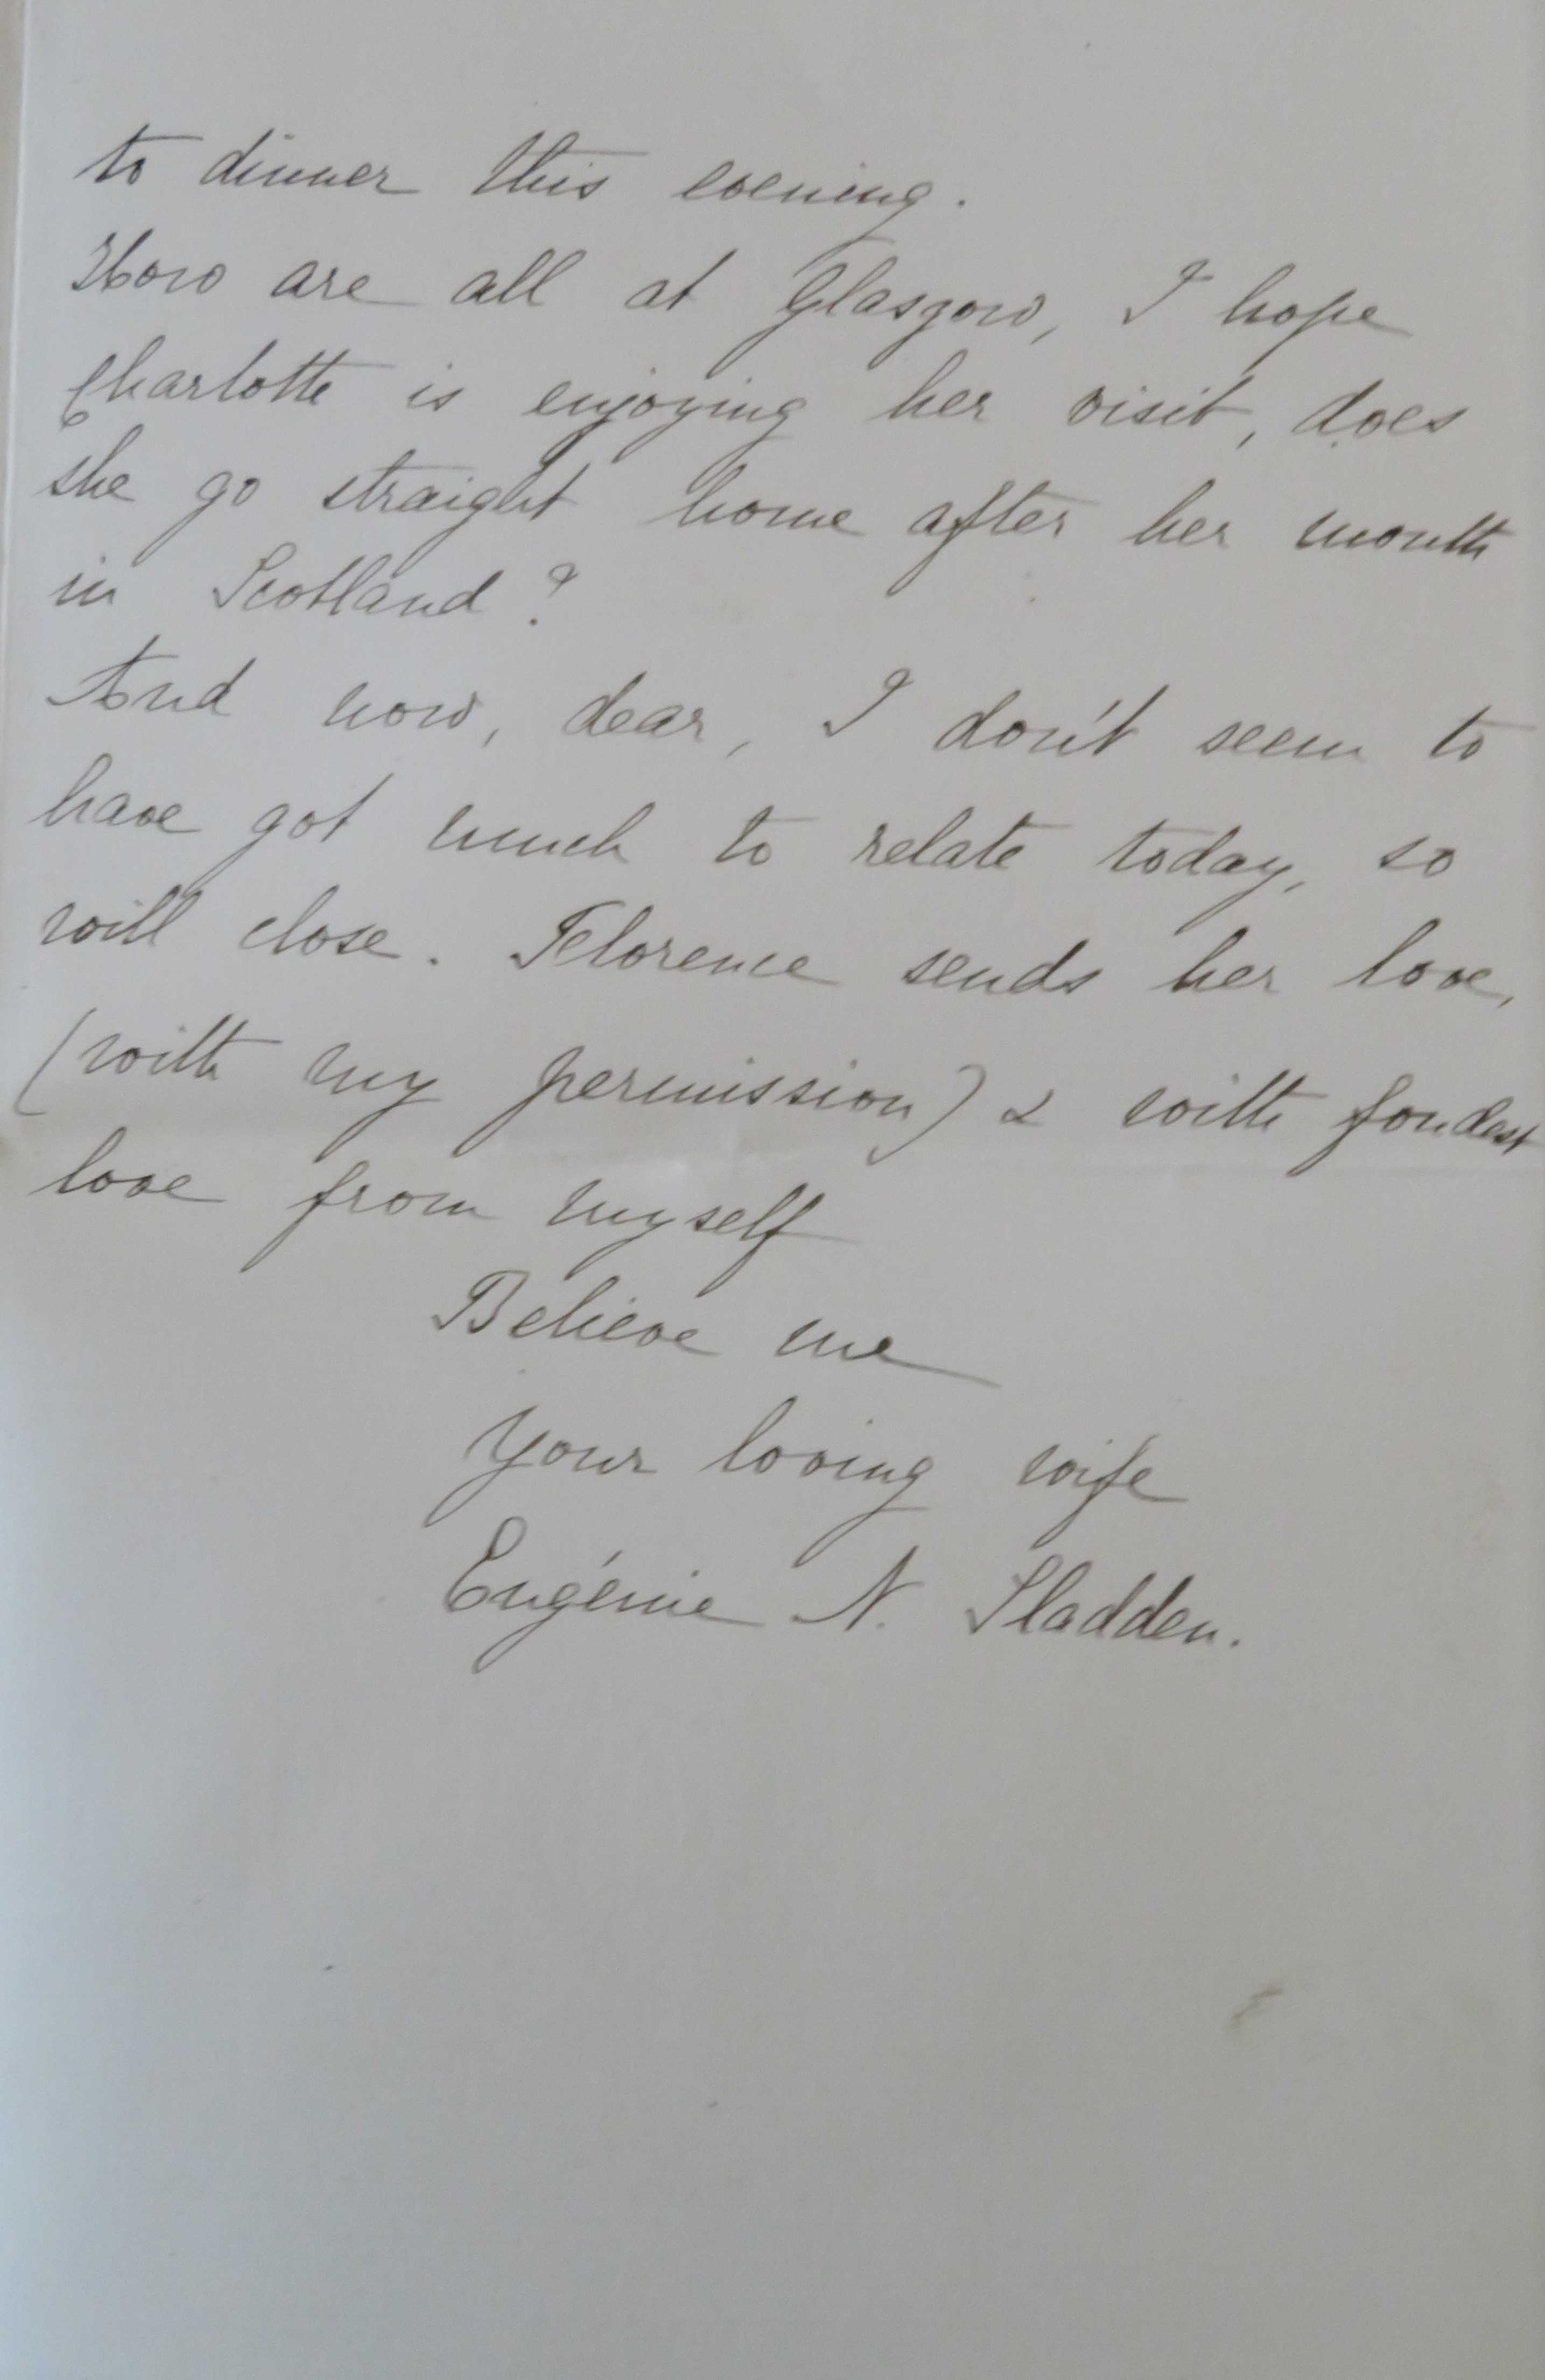 to dinner this evening.
How are all at Glasgow, I hope
Charlotte is enjoying her visit, does
she go straight home after her month
in Scotland?
And now, dear, I don't seem to
have got much to relate today, so
will close. Florence sends her love,
(with my permission) & with fondest
love from myself
Believe me
Your loving wife
Eugénie N. Sladden.